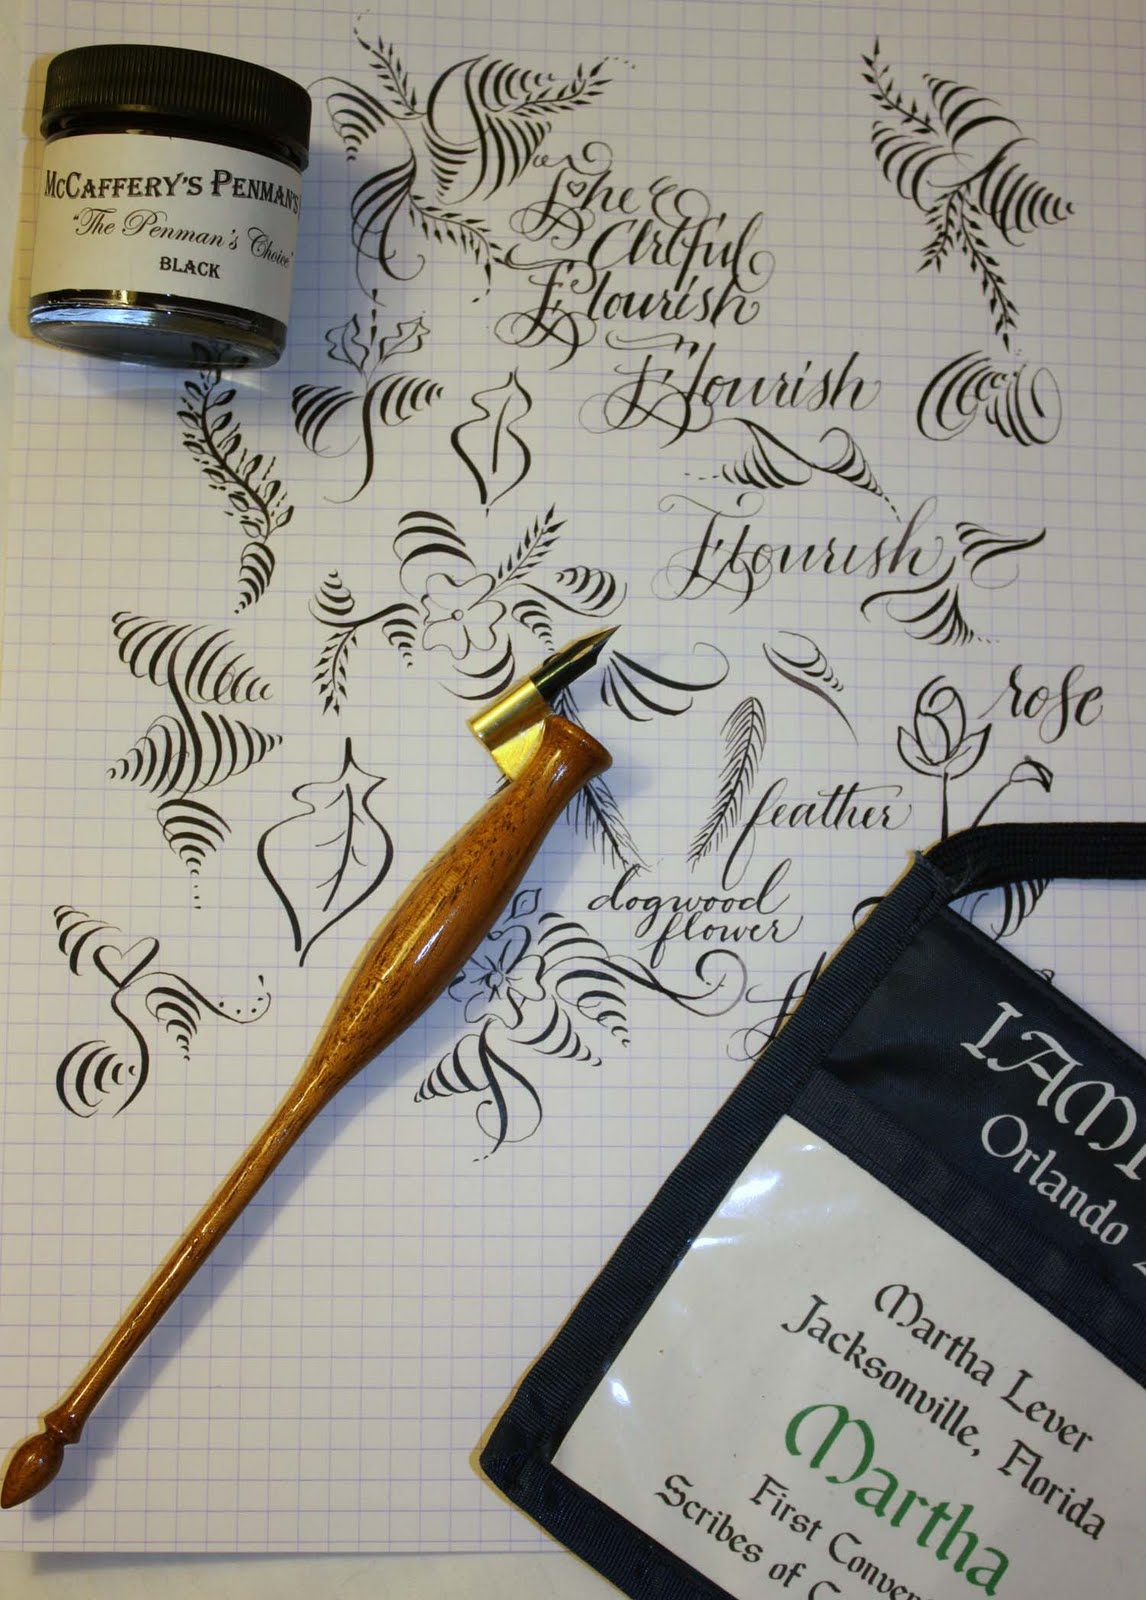 McCaffery's Penman's
"The Penman's Choice"
BLACK
The
Artful
Flourish
Flourish
Flourish
rose
feather
dogwood
flower
Orlando
Martha Lever
Jacksonville, Florida
Martha
First
Scribes of